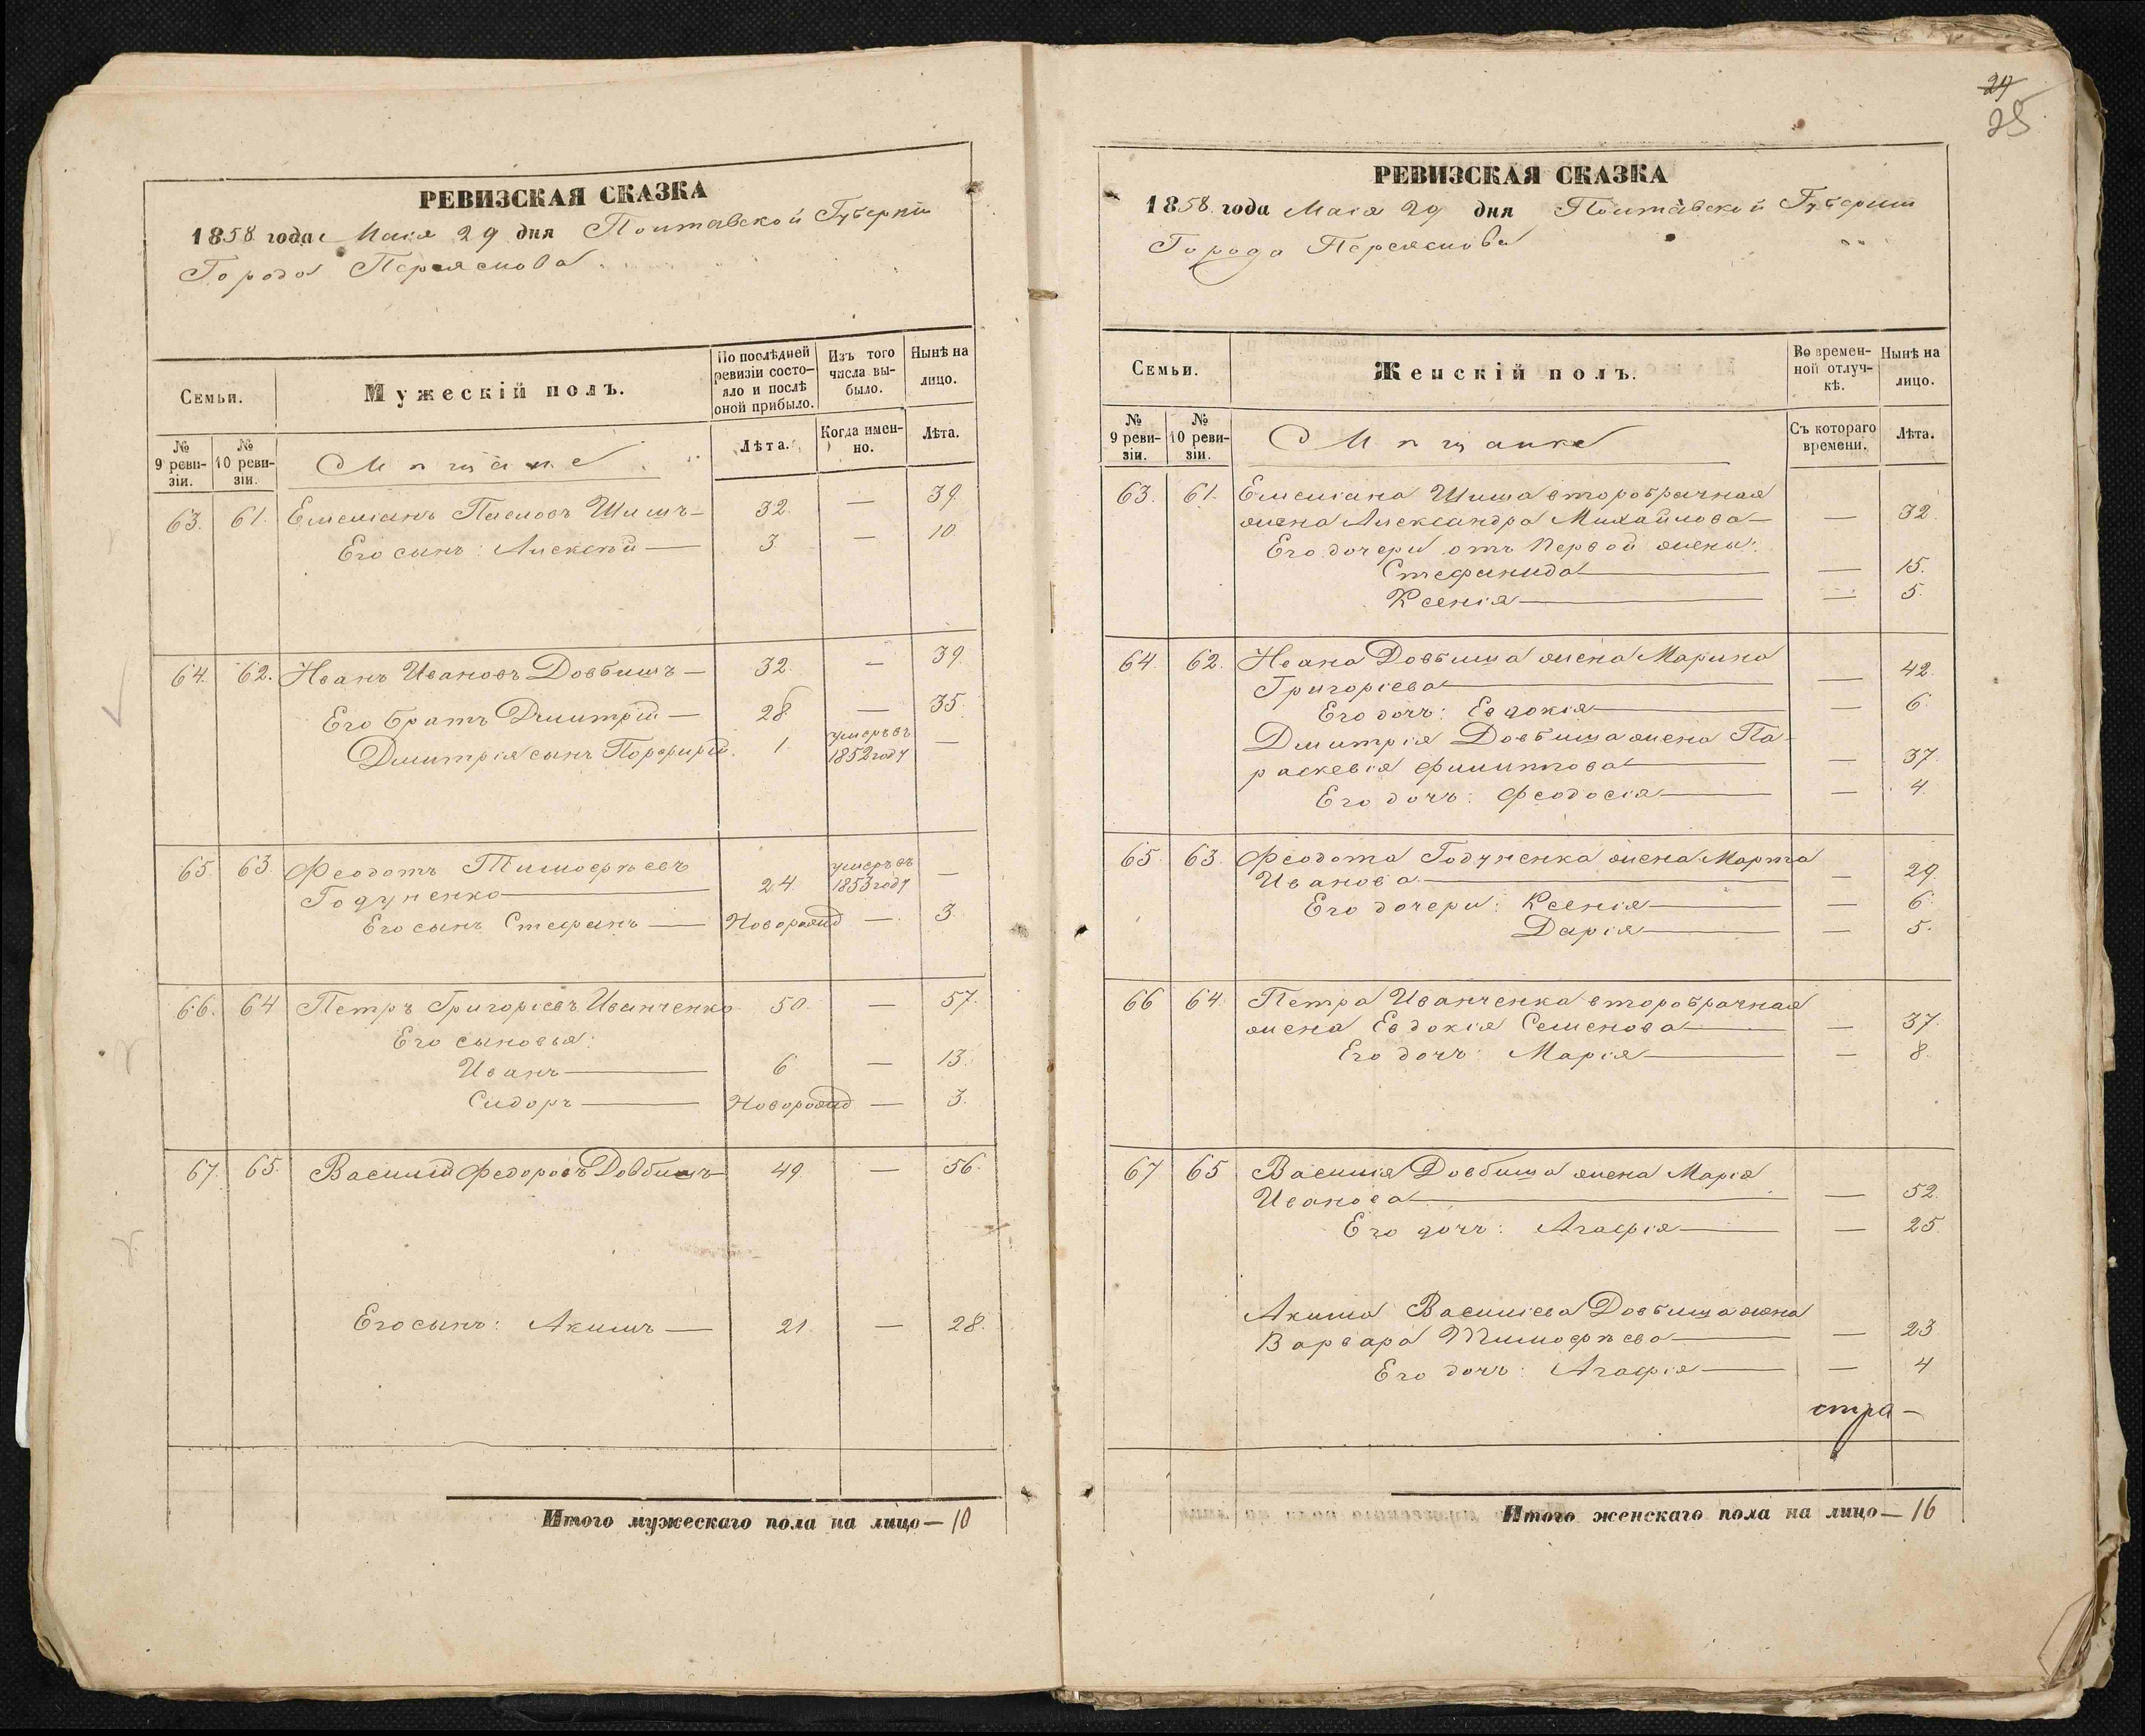 РЕВИЗСКАЯ СКАЗКА
1858 года Маія 29 дня Полтавской Губерніи
Города Переяслова
Семьи.
Мужескій полъ.
По послѣдней ревизіи состояло и послѣ оной прибыло.
Изъ того числа выбыло.
Нынѣ на лицо.
№ 9 ревизіи.
№ 10 ревизіи.
Мѣщане
Лѣта.
Когда именно.
Лѣта.
63. 61. Емеліанъ Павловъ Шишъ — 32. — 39.
Его сынъ: Алексѣй — 3 — 10.
64. 62. Иванъ Ивановъ Довбишъ — 32. — 39.
Его братъ Дмитрій — 28 — 35.
Дмитрія сынъ Порфирій. 1. умеръ въ 1852 году —
65. 63. Феодотъ Тимофѣевъ
Годуненко — 24. умеръ въ 1853 году —
Его сынъ Стефанъ — Новорожд — 3.
66. 64 Петръ Григоріевъ Иванченко 50. — 57.
Его сыновья:
Иванъ — 6 — 13.
Сидоръ — Новорожд — 3.
67. 65. Василій Федоровъ Довбишъ 49. — 56.
Его сынъ: Акимъ — 21. — 28.
Итого мужескаго пола на лицо — 10
24
25
РЕВИЗСКАЯ СКАЗКА
1858. года Маія 29 дня Полтавской Губерніи
Города Переяслова
Семьи.
Женскій полъ.
Во временной отлучкѣ.
Нынѣ на лицо.
№ 9 ревизіи.
№ 10 ревизіи.
Мѣщанке
Съ котораго времени.
Лѣта.
63. 61. Емеліана Шиша второбрачная
жена Александра Михайлова — — 32.
Его дочери отъ первой жены:
Стефанида — — 15.
Ксенія — — 5.
64. 62. Ивана Довбиша жена Марина
Григоріева — — 42.
Его дочь: Евдокія — — 6.
Дмитрія Довбиша жена Па-
раскевія Филиппова — — 37.
Его дочь: Феодосія — — 4.
65. 63. Феодота Годуненка жена Марта
Иванова — — 29.
Его дочери: Ксенія — — 6.
Дарія — — 5.
66 64. Петра Иванченка второбрачная
жена Евдокія Семенова — — 37.
Его дочь: Марія — — 8.
67 65 Василія Довбиша жена Марія
Иванова — — 52.
Его дочь: Агафія — — 25.
Акима Василіева Довбиша жена
Варвара Тимофѣева — — 23
Его дочь: Агафія — — 4
стра —
Итого женскаго пола на лицо — 16